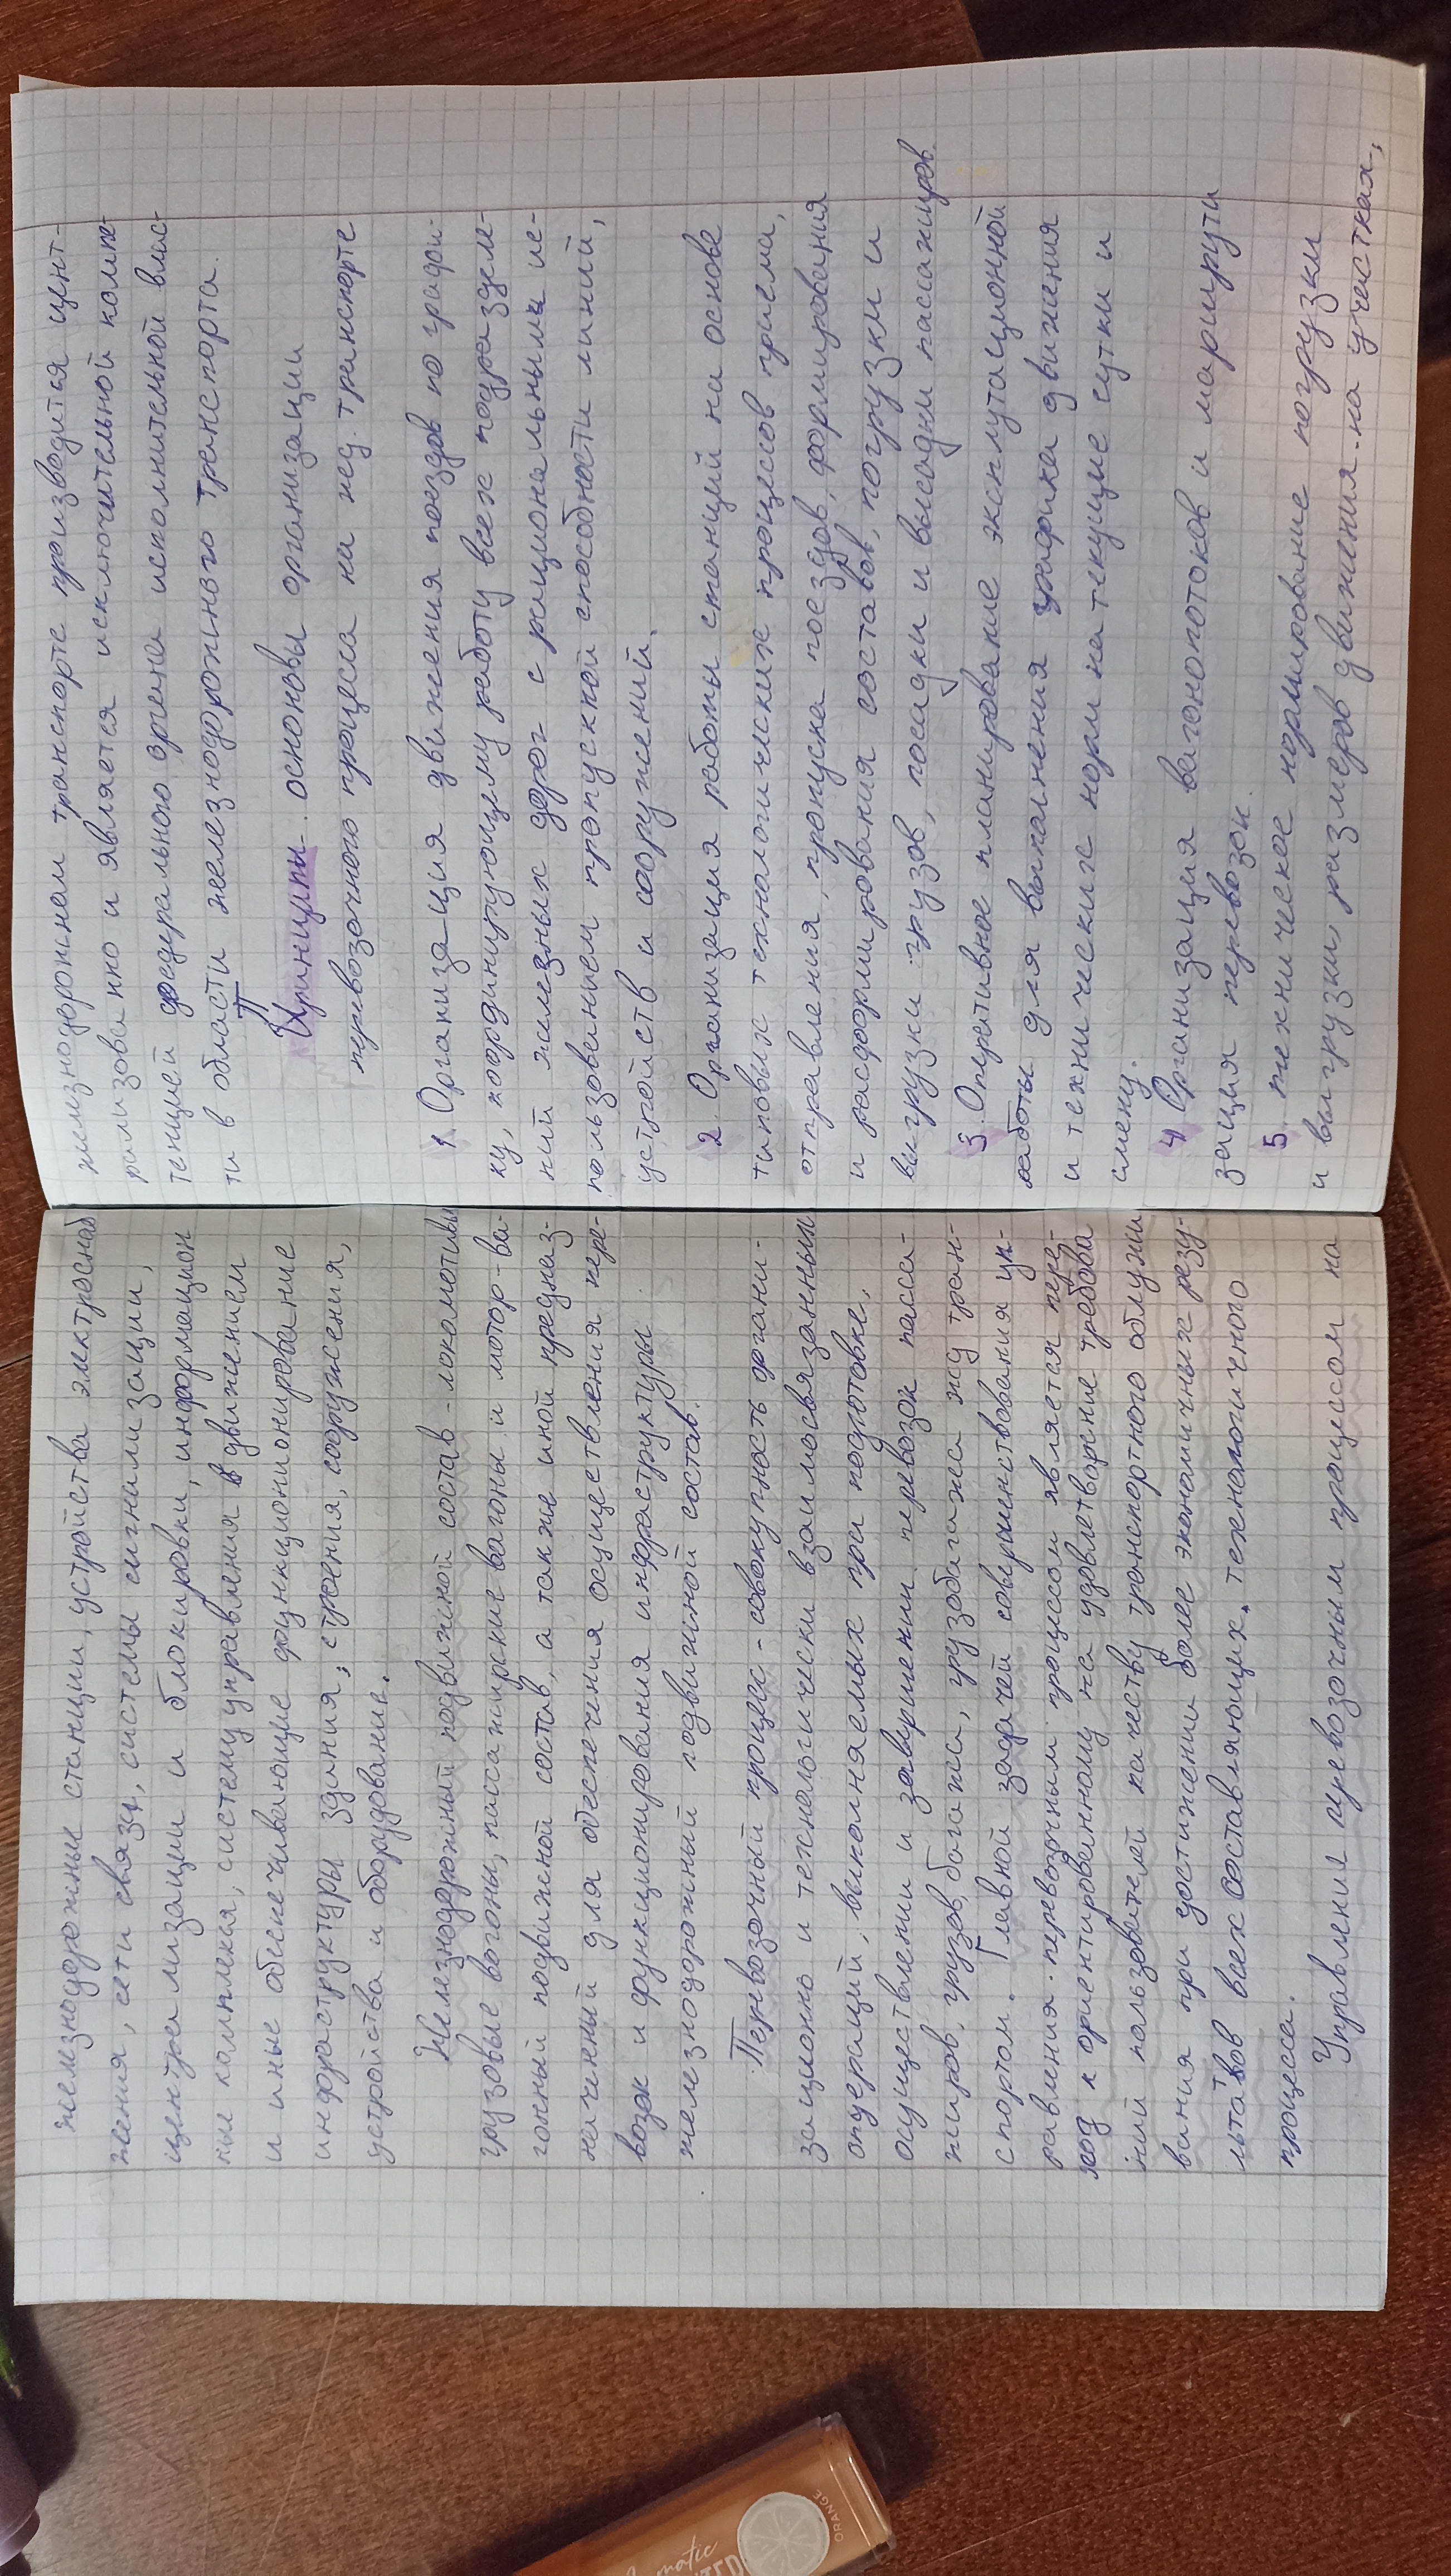 железнодорожные станции, устройства электроснаб
жения, сети связи, системы сигнализации,
централизации и блокировки, информацион
ные комплекся, систему управления движением
и иные обеспечивающие функционирование
индраструктуры здания, строения, сооружения,
устройства и оборудование.
Железнодорожный подвижной состав - локомотивы
грузовые вагоны, пассажирские вагоны и мотор-ва-
гонный подвижной состав, а также иной предназ-
наченный для обеспечения осуществления пере-
возок и функционирования инфраструктуры
железнодорожный подвижной состав.
Перевозочный процесс - совокупность органи-
зационно и технологически взаимосвязанных
операций, выполняемых при подготовке,
осуществлении и завершении перевозок пасса-
жиров, грузов, багажа, грузобагажа жд тран-
спортом. Главной задачей совершенствования уп-
равления перевозочным процессом является пере-
ход к ориентированному на удовлетворение требова
ний пользователей качеству транспортного обслужи
вания при достижении более экономичных резу-
льтатов всех составляющих технологичного
процесса.
Управление перевозочным процессом на
железнодорожном транспорте производится цент-
рализованно и является исключительной компе-
тенцией федерального органа исполнительной влас-
ти в области железнодорожного транспорта.
П
Принципы основы организации
перевозочного процесса на жд. транспорте
1. Организация движения поездов по графи-
ку, координирующему работу всех подразделе-
ний железных дорог с рациональными ис-
пользованием пропускной способности линий,
устройств и сооружений.
2. Организация работы станций на основе
типовых технологических процессов приема,
отправления, пропуска поездов, формирования
и расформирования составов, погрузки и
выгрузки грузов, посадки и высадки пасажиров.
3. Оперативное планирование эксплутационной
работы для выполнения графика движения
и технических норм на текущие сутки и
смену.
4. Организация вагонопотоков и маршрути
зация перевозок.
5. техническое нормирование погрузки
и выгрузки, размеров движения на участках,
ORANGE